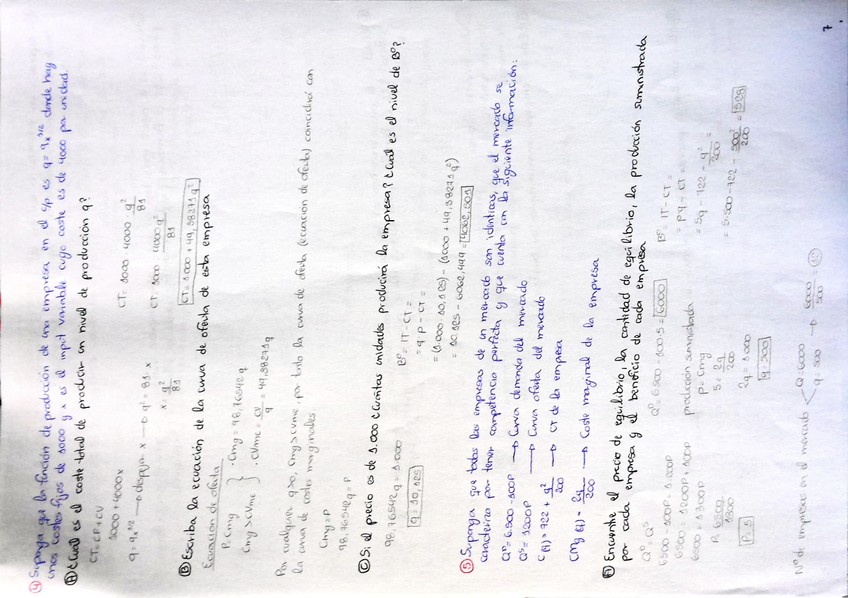 ④ Suponga que la función de producción de una empresa en el c/p es q = 9x^1/2 donde hay
unos costes fijos de 1000 y x es el input variable cuyo coste es de 4000 por unidad.
Ⓐ ¿Cuál es el coste total de producir un nivel de producción q?
CT = CF + CV
1000 + 4000x
q = 9x^1/2 → despeja x → q² = 81·x
x = q²/81
CT = 1000 + 4000 · q²/81
CT = 1000 + 4000q²/81
CT = 1.000 + 49,38271q²
Ⓑ Escriba la ecuación de la curva de oferta de esta empresa
Ecuación de oferta
P = Cmg
Cmg > CVMe
· Cmg = 98,76542q
· CVMe = CV/q = 49,38271q
Por cualquier q>0, Cmg > CVMe, por tanto la curva de oferta (ecuación de oferta) coincidirá con
la curva de costes marginales
Cmg = P
98,76542q = P
Ⓒ Si el precio es de 1.000 ¿Cuántas unidades producirá la empresa? ¿Cuál es el nivel de Bº?
98,76542q = 1.000
q = 10,125
Bº = IT - CT =
= q·p - CT =
= (1.000·10,125) - (1000 + 49,38271q²)
= 10.125 - 6062,499 = 4062,501
⑤ Suponga que todas las empresas de un mercado son idénticas, que el mercado se
caracteriza por tener competencia perfecta y que cuenta con la siguiente información:
Qᴰ = 6.500 - 100P → Curva demanda del mercado
Qˢ = 1200P → Curva oferta del mercado
C(q) = 722 + q²/200 → CT de la empresa
CMg(q) = 2q/200 → Coste marginal de la empresa
Ⓐ Encuentre el precio de equilibrio, la cantidad de equilibrio, la producción suministrada
por cada empresa y el beneficio de cada empresa
Qᴰ = Qˢ
6500 - 100P = 1200P
6500 = 1200P + 100P
6500 = 1300P
P = 6500/1300
P = 5
Qᴱ = 6500 - 100·5 = 6000
producción suministrada
p = Cmg
5 = 2q/200
2q = 1.000
q = 500
Bº = IT - CT =
= p·q - CT =
= 5q - 722 - q²/200 =
= 5·500 - 722 - 500²/200 = 528
Nº de empresas en el mercado
Q = 6000
q = 500
→ 6000/500 = 12
7